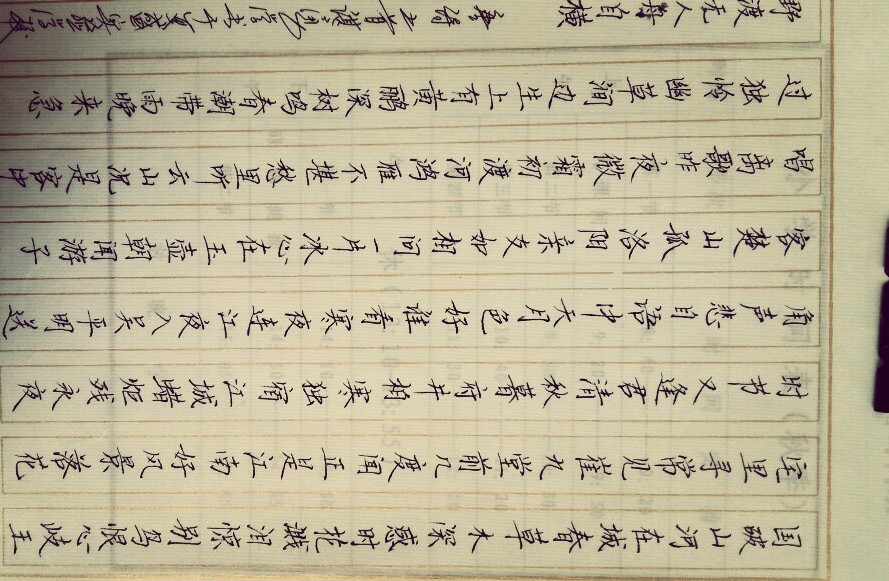 国破山河在城春草木深感时花溅泪惊别鸟恨心岐王
宅里寻常见崔九堂前几度闻正是江南好风景落花
时节又逢君清秋暮府井梧寒独宿江城蜡炬残永夜
角声悲自语中天月色好谁看寒夜连江夜入吴平明送
客楚山孤洛阳亲友如相问一片冰心在玉壶朝闻游子
唱离歌昨夜微霜初渡河鸿雁不堪愁里听云山况是客中
过独怜幽草涧边生上有黄鹂深树鸣春潮带雨晚来急
野渡无人舟自横